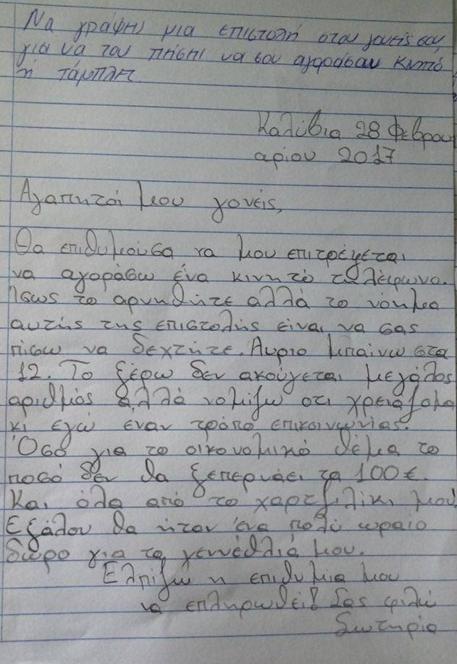 Να γράψης μια επιστολή στου γονείς σου
για να του πήσης να σου αγοράσαν κινητό
ή τάμπλετ
Καλύβια 28 Φεβρου
αρίου 2017
Αγαπητοί μου γονείς,
Θα επιθυμούσα να μου επιτρέψεται
να αγοράσω ένα κινητό τηλέφωνο.
Ίσως το αρνηθήτε αλλα το νόημα
αυτής της επιστολής είναι να σας
πίσω να δεχτήτε. Αυριο μπαίνω στα
12. Το ξέρω δεν ακούγεται μεγάλος
αριθμός αλλά νομίζω οτι χρειάζομα
κι εγώ έναν τρόπο επικοινωνίας.
Όσο για το οικονομικό θέμα το
ποσό δεν θα ξεπερνάει τα 100€.
Και όλα από το χαρτζιλίκι μου!
Εξάλου θα ήταν ένα πολύ ωραίο
δώρο για τα γεννέθλιά μου.
Ελπίζω η επιθυμια μου
να επληρωθεί! Σας φιλώ
Σωτηρία